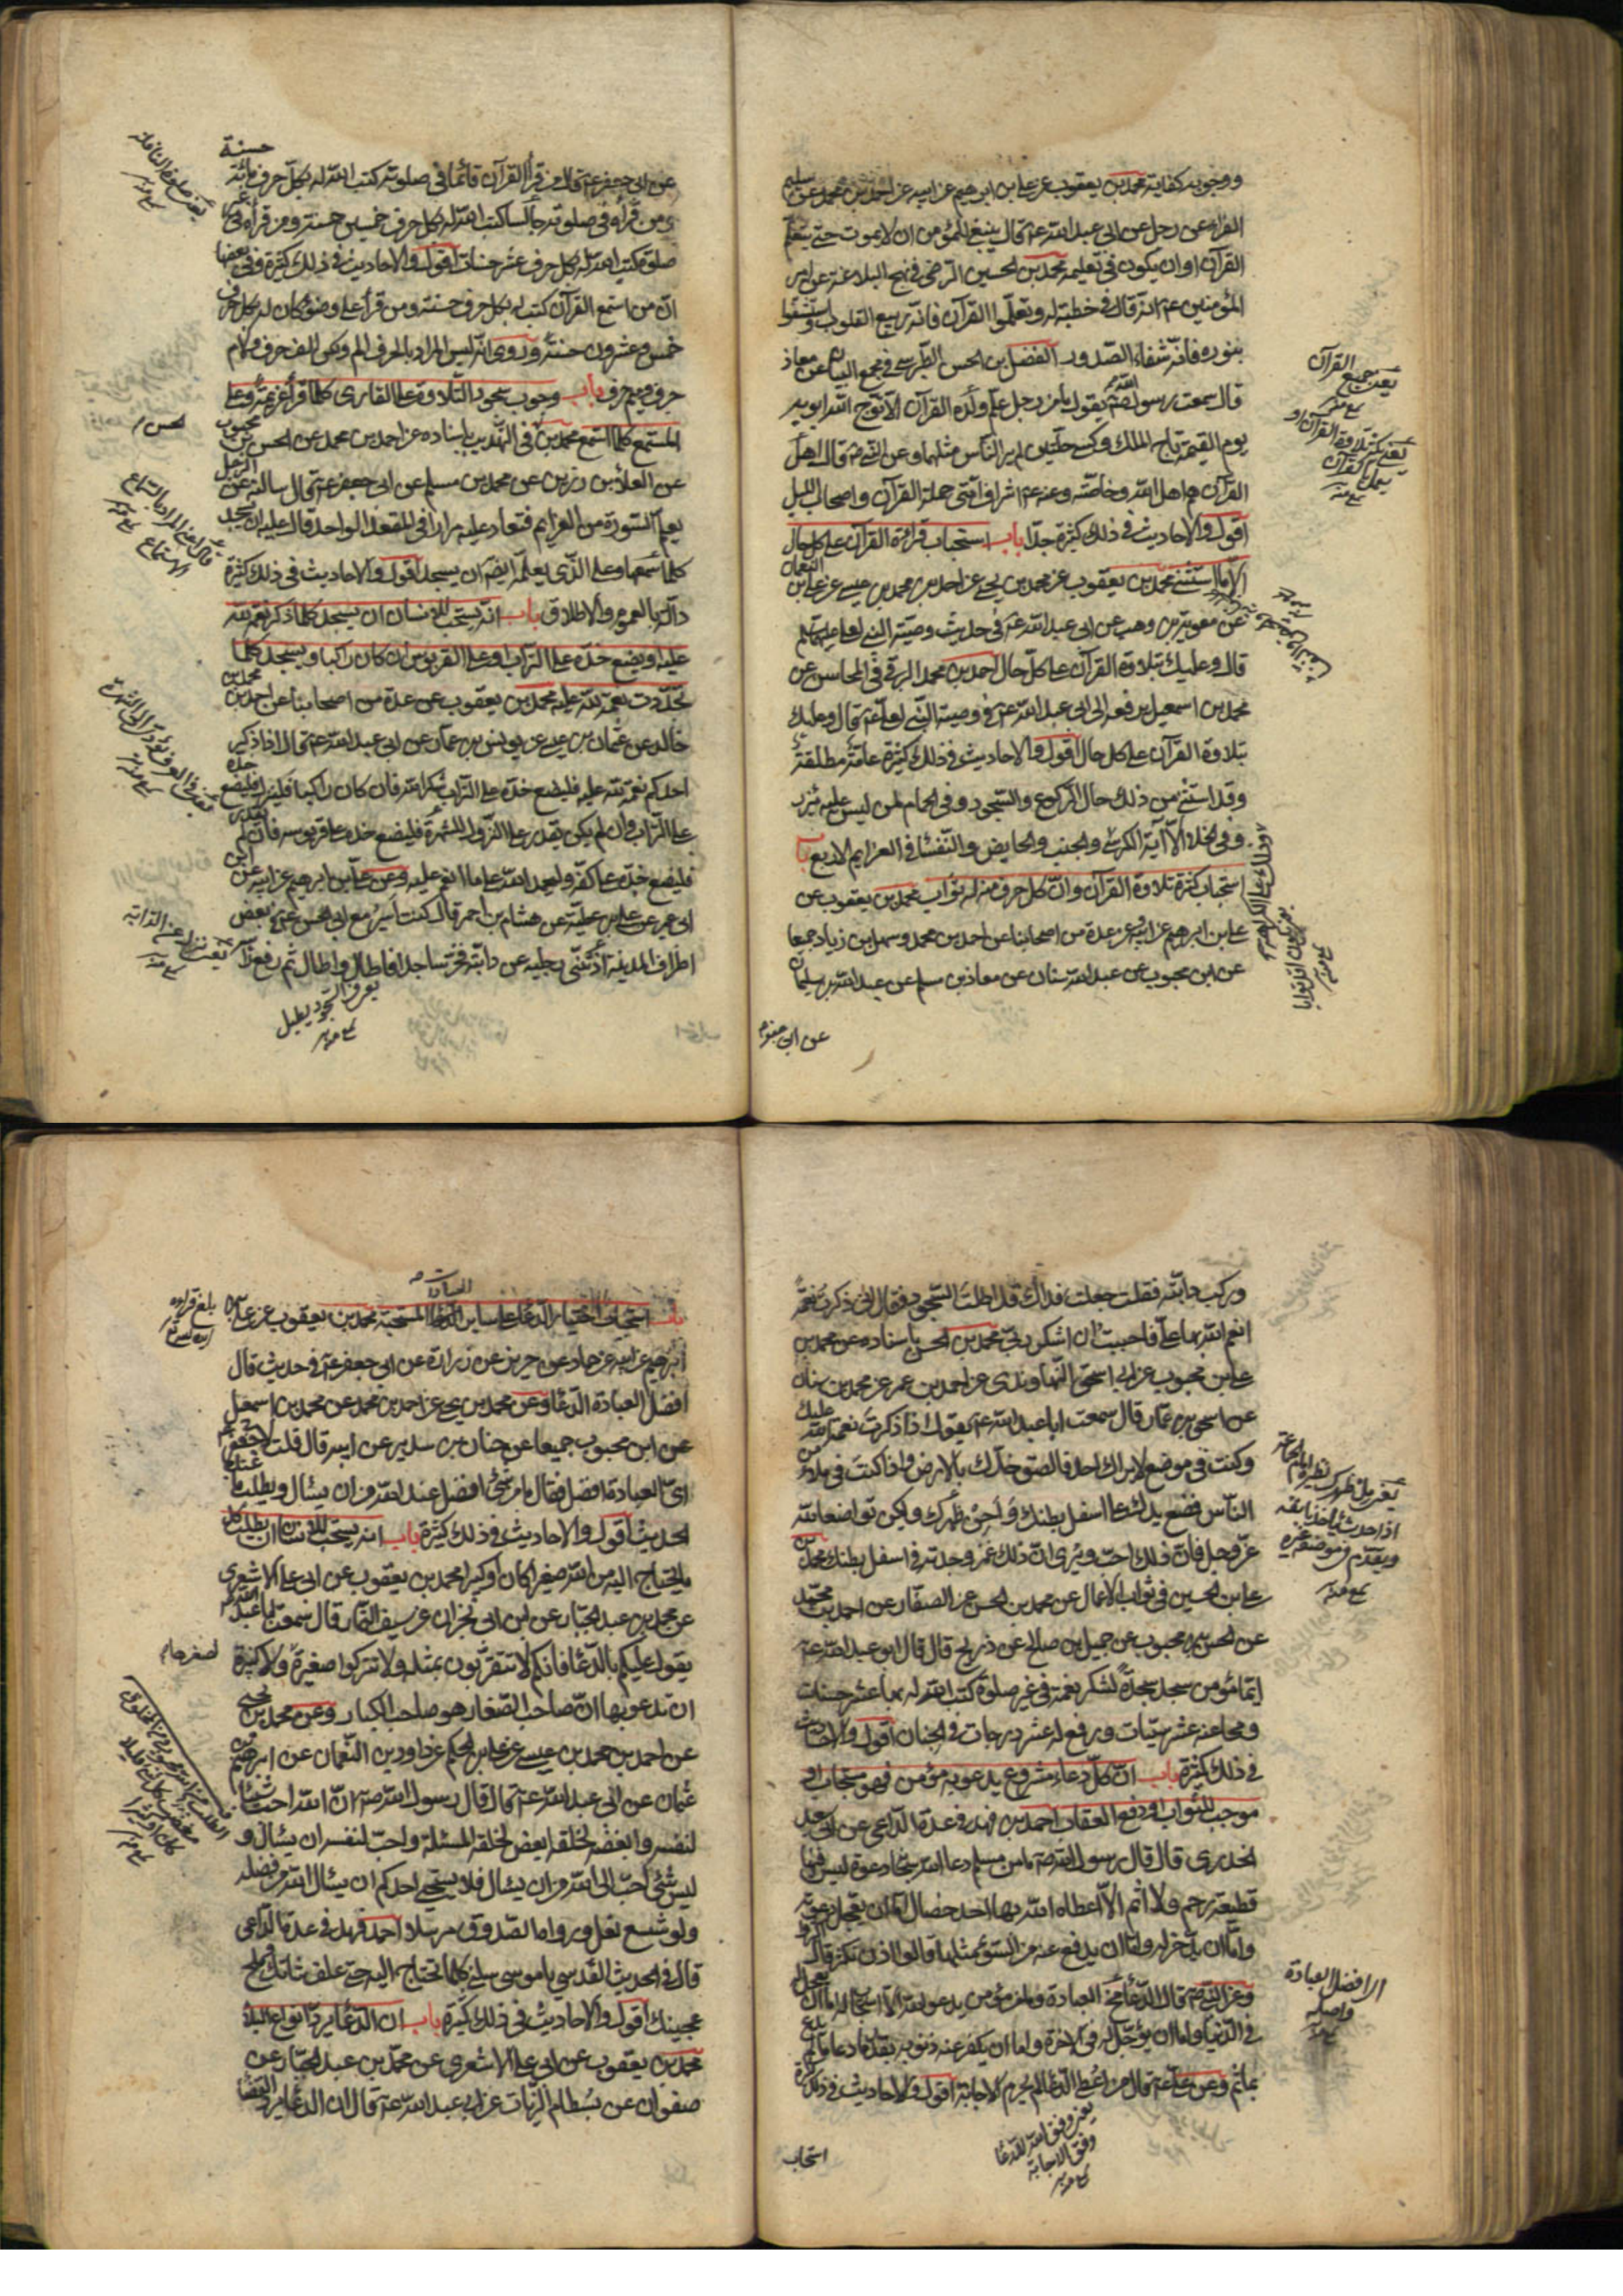 ووجوبه كفاية محمد بن يعقوب عن علي بن ابرهيم عن ابيه عن احمد بن محمد عن سليم
الفراء عن رجل عن ابي عبد الله ع قال ينبغي للمؤمن ان لا يموت حتى يتعلم
القرآن او ان يكون في تعليمه محمد بن الحسين الرضي في نهج البلاغة عن امير
المؤمنين ع انه قال في خطبة له وتعلموا القرآن فانه ربيع القلوب واستشفوا
بنوره فانه شفاء الصدور الفضل بن الحسن الطبرسي في مجمع البيان عن معاذ
قال سمعت رسول الله ص يقول ما من رجل علم ولده القرآن الا توج الله ابويه
يوم القيمة تاج الملك وكسى حلتين لم ير الناس مثلهما وعن النبي ص قال اهل
القرآن هم اهل الله وخاصته وعنه ع اشراف امتي حملة القرآن واصحاب الليل
اقول والاحاديث في ذلك كثيرة جدا باب استحباب قرائة القرآن على كل حال
الا ما استثني محمد بن يعقوب عن محمد بن يحيى عن احمد بن محمد بن عيسى عن علي بن النعمان
عن معوية بن وهب عن ابي عبد الله ع في حديث وصية النبي لعلي عليهما السلم
قال وعليك بتلاوة القرآن على كل حال احمد بن محمد البرقي في المحاسن عن
محمد بن اسمعيل يرفعه الى ابي عبد الله ع في وصية النبي لعلي ع قال وعليك
بتلاوة القرآن على كل حال اقول والاحاديث في ذلك كثيرة عامة مطلقة
وقد استثني من ذلك حال الركوع والسجود وفي الحمام لمن ليس عليه مئزر
وفي الخلاء الا آية الكرسي والجنب والحايض والنفسا في العزايم الاربع باب
استحباب كثرة تلاوة القرآن وان كل حرف منه له ثواب محمد بن يعقوب عن
علي بن ابرهيم عن ابيه وعن عدة من اصحابنا عن احمد بن محمد وسهل بن زياد جميعا
عن ابن محبوب عن عبد الله بن سنان عن معاذ بن مسلم عن عبد الله بن سليمان
عن ابي جعفر
يعني جميع القرآن
يعني كثرة تلاوة القرآن او
عن ابي جعفر ع قال من قرأ القرآن قائما في صلوته كتب الله له بكل حرف مائة حسنة
ومن قرأه في صلوته جالسا كتب الله له بكل حرف خمسين حسنة ومن قرأه في غير
صلوة كتب الله له بكل حرف عشر حسنات اقول والاحاديث في ذلك كثيرة وفي بعضها
ان من استمع القرآن كتب له بكل حرف حسنة ومن قرأ على وضوء كان له بكل حرف
خمس وعشرون حسنة وروي انه ليس المراد بالحرف الم ولكن الف حرف ولام
حرف وميم حرف باب وجوب سجود التلاوة على القاري كلما قرأ عزيمة وعلى
المستمع كلما استمع محمد بن الحسن في التهذيب باسناده عن احمد بن محمد عن الحسن بن محبوب
عن العلاء بن رزين عن محمد بن مسلم عن ابي جعفر ع قال سالته عن الرجل
يعلم السورة من العزايم فتعاد عليه مرارا في المقعد الواحد قال عليه ان يسجد
كلما سمعها وعلى الذي يعلمه ايضا ان يسجد اقول والاحاديث في ذلك كثيرة
دالة بالعموم والاطلاق باب انه يستحب للانسان ان يسجد كلما ذكر نعمة الله
عليه او يضع خده على التراب او على القربوس ان كان راكبا ويسجد كلما
تجددت نعمة الله عليه محمد بن يعقوب عن عدة من اصحابنا عن احمد بن محمد بن
خالد عن عثمان بن عيسى عن يونس بن عمار عن ابي عبد الله ع قال اذا ذكر
احدكم نعمة الله عليه فليضع خده على التراب شكرا لله فان كان راكبا فلينزل فليضع خده
على التراب وان لم يكن يقدر على النزول للشهرة فليضع خده على قربوسه فان لم يقدر
فليضع خده على كفه وليحمد الله على ما انعم عليه وعن علي بن ابرهيم عن ابيه عن ابن
ابي عمير عن علي بن عطية عن هشام بن احمر قال كنت اسير مع ابي الحسن ع في بعض
اطراف المدينة اذ ثنى رجليه عن دابته فخر ساجدا فاطال واطال ثم رفع رأسه
يعني صلوة النافلة
يعني نزل عن الدابة
وركب دابته فقلت جعلت فداك قد اطلت السجود فقال اني ذكرت نعمة
انعم الله بها علي فاحببت ان اشكر ربي محمد بن الحسن باسناده عن محمد بن
علي بن محبوب عن ابي اسحق النهاوندي عن احمد بن عمر عن محمد بن سنان
عن اسحق بن عمار قال سمعت ابا عبد الله ع يقول اذا ذكرت نعمة الله عليك
وكنت في موضع لا يراك احد فالصق خدك بالارض واذا كنت في ملاء من
الناس فضع يدك على اسفل بطنك واحن ظهرك وليكن تواضعا لله
عز وجل فان ذلك احب ويرى ان ذلك غمز وجدته في اسفل بطنك محمد بن
علي بن الحسين في ثواب الاعمال عن محمد بن الحسن عن الصفار عن احمد بن محمد
عن الحسن بن محبوب عن جميل بن صالح عن ذريح قال قال ابو عبد الله ع
ايما مؤمن سجد سجدة لشكر نعمة في غير صلوة كتب الله له بها عشر حسنات
ومحا عنه عشر سيئات ورفع له عشر درجات في الجنان اقول والاحاديث
في ذلك كثيرة باب ان كل دعاء مشروع يدعو به مؤمن فهو مستجاب او
موجب للثواب او دفع العقاب احمد بن فهد في عدة الداعي عن ابي سعيد
الخدري قال قال رسول الله ص ما من مسلم دعا الله سبحانه دعوة ليس فيها
قطيعة رحم ولا اثم الا اعطاه الله بها احد خصال اما ان يعجل دعوته
واما ان يدخر له واما ان يدفع عنه من السوء مثلها قالوا اذن نكثر قال
وعن النبي ص قال الدعاء مخ العبادة وما من مؤمن يدعو الله الا استجاب له اما ان يعجل
في الدنيا واما ان يؤجل له في الاخرة واما ان يكفر عنه ذنوبه بقدر ما دعا ما لم يدع
بماثم وعن علي ع قال من اعطي الدعاء لم يحرم الاجابة اقول والاحاديث في ذلك كثيرة
استحباب
اي افضل العبادة
واصله
يعني من وفقه الله للدعاء
وفق الاجابة
باب استحباب اختيار الدعاء على ساير العبادات المستحبة محمد بن يعقوب عن علي بن
ابرهيم عن ابيه عن حماد عن حريز عن زرارة عن ابي جعفر ع في حديث قال
افضل العبادة الدعاء وعن محمد بن يحيى عن احمد بن محمد عن محمد بن اسمعيل
عن ابن محبوب جميعا عن حنان بن سدير عن ابيه قال قلت لابي جعفر ع
اي العبادة افضل فقال ما من شيء افضل عند الله من ان يسأل ويطلب ما عنده
الحديث اقول والاحاديث في ذلك كثيرة باب انه يستحب للانسان ان يطلب كل
ما يحتاج اليه من الله صغيرا كان او كبيرا محمد بن يعقوب عن ابي علي الاشعري
عن محمد بن عبد الجبار عن ابن ابي نجران عن سيف التمار قال سمعت ابا عبد الله ع
يقول عليكم بالدعاء فانكم لا تتقربون بمثله ولا تتركوا صغيرة
ان تدعو بها ان صاحب الصغار هو صاحب الكبار وعن محمد بن يحيى
عن احمد بن محمد بن عيسى عن علي بن الحكم عن داود بن النعمان عن ابرهيم بن
عثمان عن ابي عبد الله ع قال قال رسول الله ص ان الله احب شيئا
لنفسه وابغضه لخلقه ابغض لخلقه المسئلة واحب لنفسه ان يسأل و
ليس شيء احب الى الله من ان يسأل فلا يستحيي احدكم ان يسأل الله من فضله
ولو شسع نعل ورواه الصدوق مرسلا احمد بن فهد في عدة الداعي
قال في الحديث القدسي يا موسى سلني كلما تحتاج اليه حتى علف شاتك وملح
عجينك اقول والاحاديث في ذلك كثيرة باب ان الدعاء يرد انواع البلاء
محمد بن يعقوب عن ابي علي الاشعري عن محمد بن عبد الجبار عن
صفوان عن بسطام الزيات عن ابي عبد الله ع قال ان الدعاء يرد القضاء